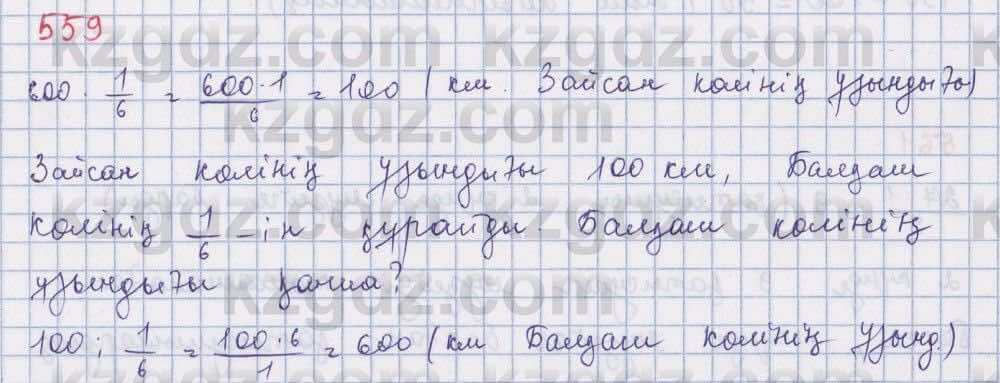 559
600 · 1/6 = 600·1/6 = 100 (км. Зайсан көлінің ұзындығы)
Зайсан көлінің ұзындығы 100 км, Балқаш
көлінің 1/6 -ін құрайды. Балқаш көлінің
ұзындығы қанша?
100 : 1/6 = 100·6/1 = 600 (км Балқаш көлінің ұзынд.)